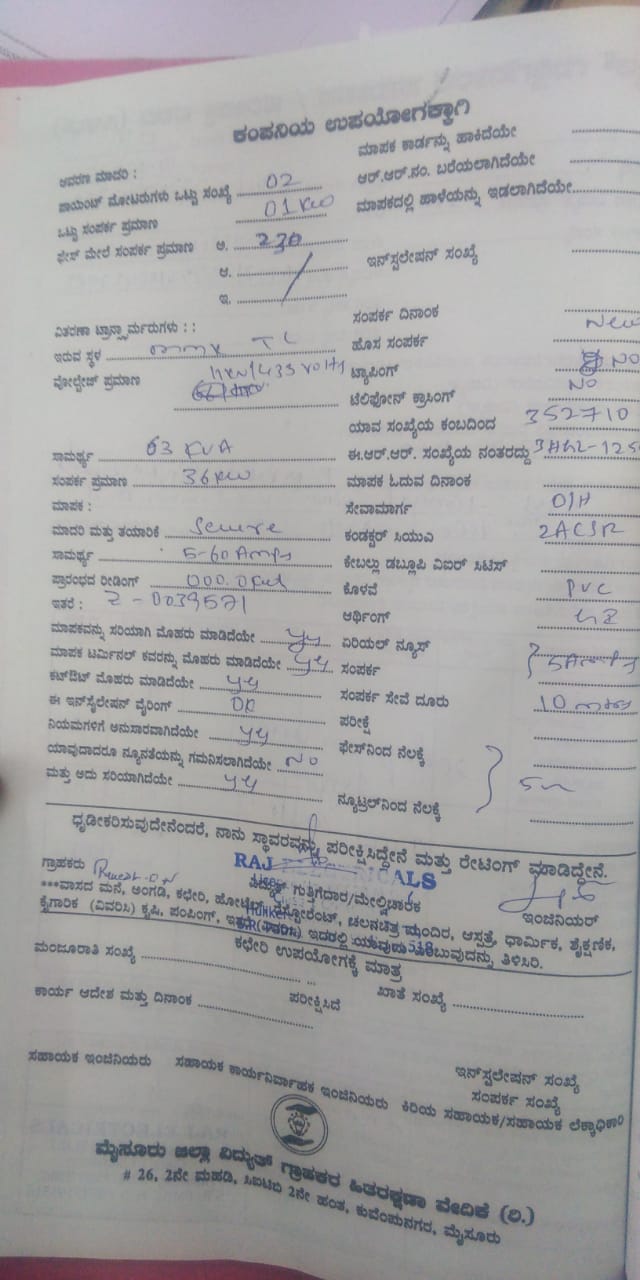 ಕಂಪನಿಯ ಉಪಯೋಗಕ್ಕಾಗಿ
ಆವರಣ ಮಾದರಿ :
ಪಾಯಿಂಟ್ ಮೋಟರುಗಳು ಒಟ್ಟು ಸಂಖ್ಯೆ 02
ಒಟ್ಟು ಸಂಪರ್ಕ ಪ್ರಮಾಣ 01 KW
ಫೇಸ್ ಮೇಲೆ ಸಂಪರ್ಕ ಪ್ರಮಾಣ ಆ. 230
ಆ.
ಇ.
ವಿತರಣಾ ಟ್ರಾನ್ಸ್ಫಾರ್ಮರುಗಳು : :
ಇರುವ ಸ್ಥಳ TC
ವೋಲ್ಟೇಜ್ ಪ್ರಮಾಣ 11KV/433 Volts
ಸಾಮರ್ಥ್ಯ 63 KVA
ಸಂಪರ್ಕ ಪ್ರಮಾಣ 36 KW
ಮಾಪಕ :
ಮಾದರಿ ಮತ್ತು ತಯಾರಿಕೆ Secure
ಸಾಮರ್ಥ್ಯ 5-60 Amps
ಪ್ರಾರಂಭದ ರೀಡಿಂಗ್ 000.0
ಇತರೆ : Z-0039571
ಮಾಪಕವನ್ನು ಸರಿಯಾಗಿ ಮೊಹರು ಮಾಡಿದೆಯೇ yy
ಮಾಪಕ ಟರ್ಮಿನಲ್ ಕವರನ್ನು ಮೊಹರು ಮಾಡಿದೆಯೇ yy
ಕಟ್ಔಟ್ ಮೊಹರು ಮಾಡಿದೆಯೇ yy
ಈ ಇನ್‌ಸ್ಟಲೇಷನ್ ವೈರಿಂಗ್ OK
ನಿಯಮಗಳಿಗೆ ಅನುಸಾರವಾಗಿದೆಯೇ yy
ಯಾವುದಾದರೂ ನ್ಯೂನತೆಯನ್ನು ಗಮನಿಸಲಾಗಿದೆಯೇ NO
ಮತ್ತು ಅದು ಸರಿಯಾಗಿದೆಯೇ yy
ಮಾಪಕ ಕಾರ್ಡನ್ನು ಹಾಕಿದೆಯೇ
ಆರ್.ಆರ್.ನಂ. ಬರೆಯಲಾಗಿದೆಯೇ
ಮಾಪಕದಲ್ಲಿ ಹಾಳೆಯನ್ನು ಇಡಲಾಗಿದೆಯೇ
ಇನ್‌ಸ್ಟಲೇಷನ್ ಸಂಖ್ಯೆ
ಸಂಪರ್ಕ ದಿನಾಂಕ
ಹೊಸ ಸಂಪರ್ಕ New
ಟ್ಯಾಪಿಂಗ್ NO
ಟೆಲಿಫೋನ್ ಕ್ರಾಸಿಂಗ್ NO
ಯಾವ ಸಂಖ್ಯೆಯ ಕಂಬದಿಂದ 352710
ಈ.ಆರ್.ಆರ್. ಸಂಖ್ಯೆಯ ನಂತರದ್ದು
ಮಾಪಕ ಓದುವ ದಿನಾಂಕ
ಸೇವಾಮಾರ್ಗ O/H
ಕಂಡಕ್ಟರ್ ಸಿಯುವಿ 2ACSR
ಕೇಬಲ್ಲು ಡಬ್ಲೂಪಿ ವಿಐರ್ ಸಿಟಿಸ್
ಕೊಳವೆ PVC
ಆರ್ಥಿಂಗ್
ಏರಿಯಲ್ ನ್ಯೂಸ್
ಸಂಪರ್ಕ 5Amps
ಸಂಪರ್ಕ ಸೇವೆ ದೂರು 10 mtrs
ಪರೀಕ್ಷೆ
ಫೇಸ್‌ನಿಂದ ನೆಲಕ್ಕೆ
ನ್ಯೂಟ್ರಲ್‌ನಿಂದ ನೆಲಕ್ಕೆ
ಧೃಡೀಕರಿಸುವುದೇನೆಂದರೆ, ನಾನು ಸ್ಥಾವರವನ್ನು ಪರೀಕ್ಷಿಸಿದ್ದೇನೆ ಮತ್ತು ರೇಟಿಂಗ್ ಮಾಡಿದ್ದೇನೆ.
RAJ
ಗ್ರಾಹಕರು ವಿದ್ಯುತ್ ಗುತ್ತಿಗೆದಾರ/ಮೇಲ್ವಿಚಾರಕ ಇಂಜಿನಿಯರ್
***ವಾಸದ ಮನೆ, ಅಂಗಡಿ, ಕಛೇರಿ, ಹೋಟೆಲ್, ರೆಸ್ಟೋರೆಂಟ್, ಚಲನಚಿತ್ರ ಮಂದಿರ, ಆಸ್ಪತ್ರೆ, ಧಾರ್ಮಿಕ, ಶೈಕ್ಷಣಿಕ,
ಕೈಗಾರಿಕ (ವಿವರಿಸಿ) ಕೃಷಿ, ಪಂಪಿಂಗ್, ಇತರೆ (ವಿವರಿಸಿ) ಇದರಲ್ಲಿ ಯಾವುದು ಎಂಬುವುದನ್ನು ತಿಳಿಸಿರಿ.
ಕಛೇರಿ ಉಪಯೋಗಕ್ಕೆ ಮಾತ್ರ
ಮಂಜೂರಾತಿ ಸಂಖ್ಯೆ
ಖಾತೆ ಸಂಖ್ಯೆ
ಕಾರ್ಯ ಆದೇಶ ಮತ್ತು ದಿನಾಂಕ ಪರೀಕ್ಷಿಸಿದೆ
ಇನ್‌ಸ್ಟಲೇಷನ್ ಸಂಖ್ಯೆ
ಸಂಪರ್ಕ ಸಂಖ್ಯೆ
ಸಹಾಯಕ ಇಂಜಿನಿಯರು ಸಹಾಯಕ ಕಾರ್ಯನಿರ್ವಾಹಕ ಇಂಜಿನಿಯರು ಕಿರಿಯ ಸಹಾಯಕ/ಸಹಾಯಕ ಲೆಕ್ಕಾಧಿಕಾರಿ
ಮೈಸೂರು ಜಿಲ್ಲಾ ವಿದ್ಯುತ್ ಗ್ರಾಹಕರ ಹಿತರಕ್ಷಣಾ ವೇದಿಕೆ (ರಿ.)
# 26, 2ನೇ ಮಹಡಿ, ಸಿಐಟಿಬಿ 2ನೇ ಹಂತ, ಕುವೆಂಪುನಗರ, ಮೈಸೂರು